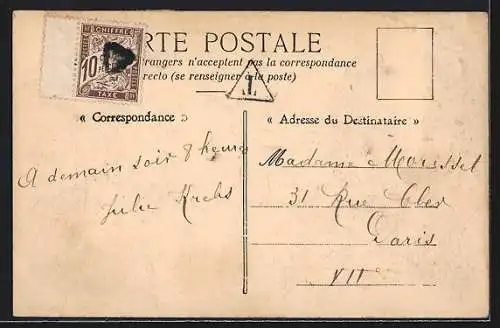 RTE POSTALE
trangers n'acceptent pas la correspondance
recto (se renseigner à la poste)
CHIFFRE
10
TAXE
T
« Correspondance »
« Adresse du Destinataire »
A demain soir 8 heures
Julie Krebs
Madame
31 Rue
Paris
VII